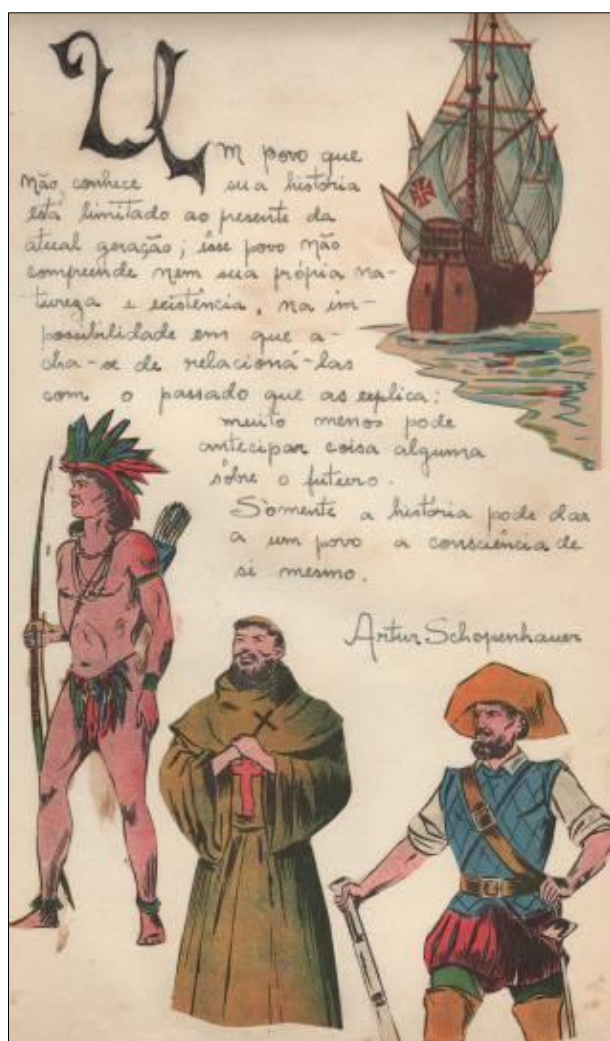 Um povo que
não conhece sua história
está limitado ao presente da
atual geração; êsse povo não
compreende nem sua própria na-
tureza e existência, na im-
possibilidade em que a-
cha-se de relacioná-las
com o passado que as explica:
muito menos pode
antecipar coisa alguma
sôbre o futuro.
Sòmente a história pode dar
a um povo a consciência de
si mesmo.
Artur Schopenhauer